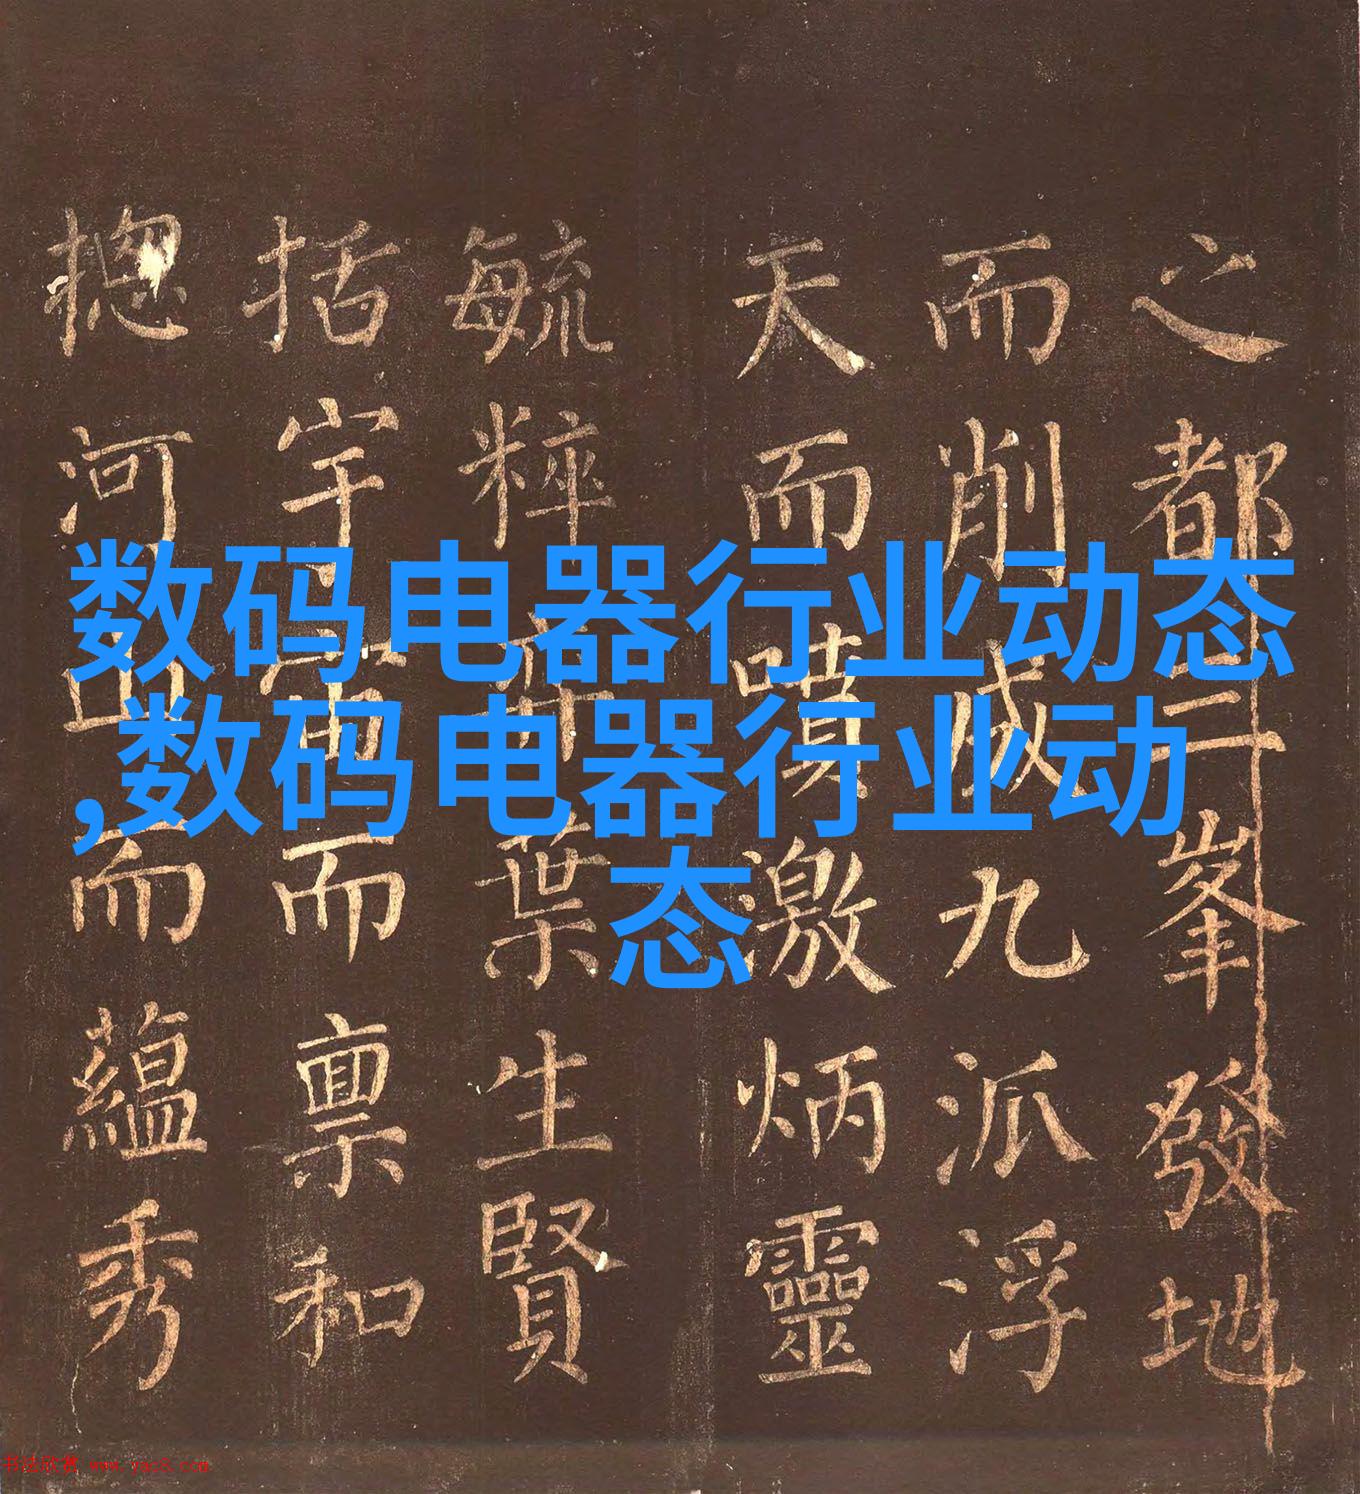 数码电器行业动态
,数码电器行业动
态
之都三峯發地
而削成九派浮
天而噴激炳靈
毓粹弈葉生賢
括宇宙而稟和
揔河山而蘊秀
书法欣赏 www.yac8.com